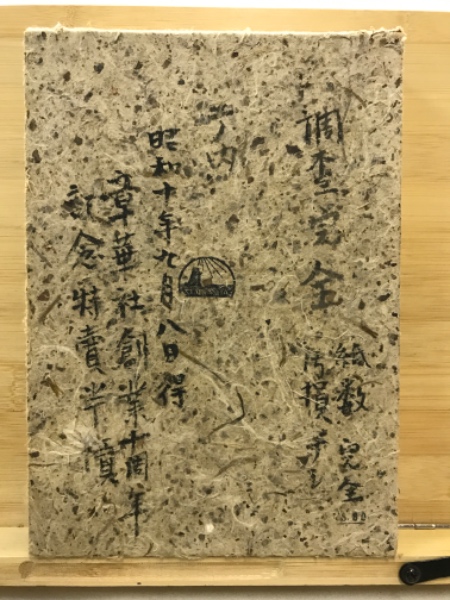 調査完全
紙数完全
汚損ナシ
内
昭和十年九月八日得
章華社創業十周年
記念特賣半價